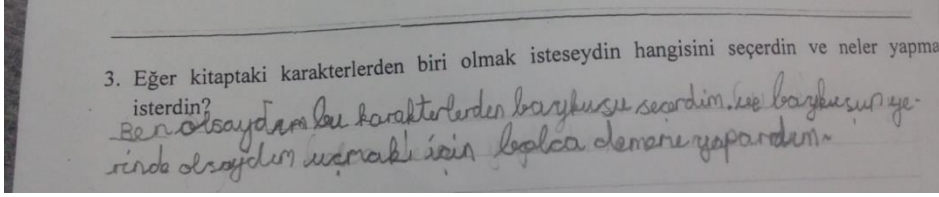 3. Eğer kitaptaki karakterlerden biri olmak isteseydin hangisini seçerdin ve neler yapma
isterdin?
Ben olsaydım bu karakterlerden baykuşu seçerdim. ve baykuşun ye-
rinde olsaydım uçmak için bolca deneme yapardım.